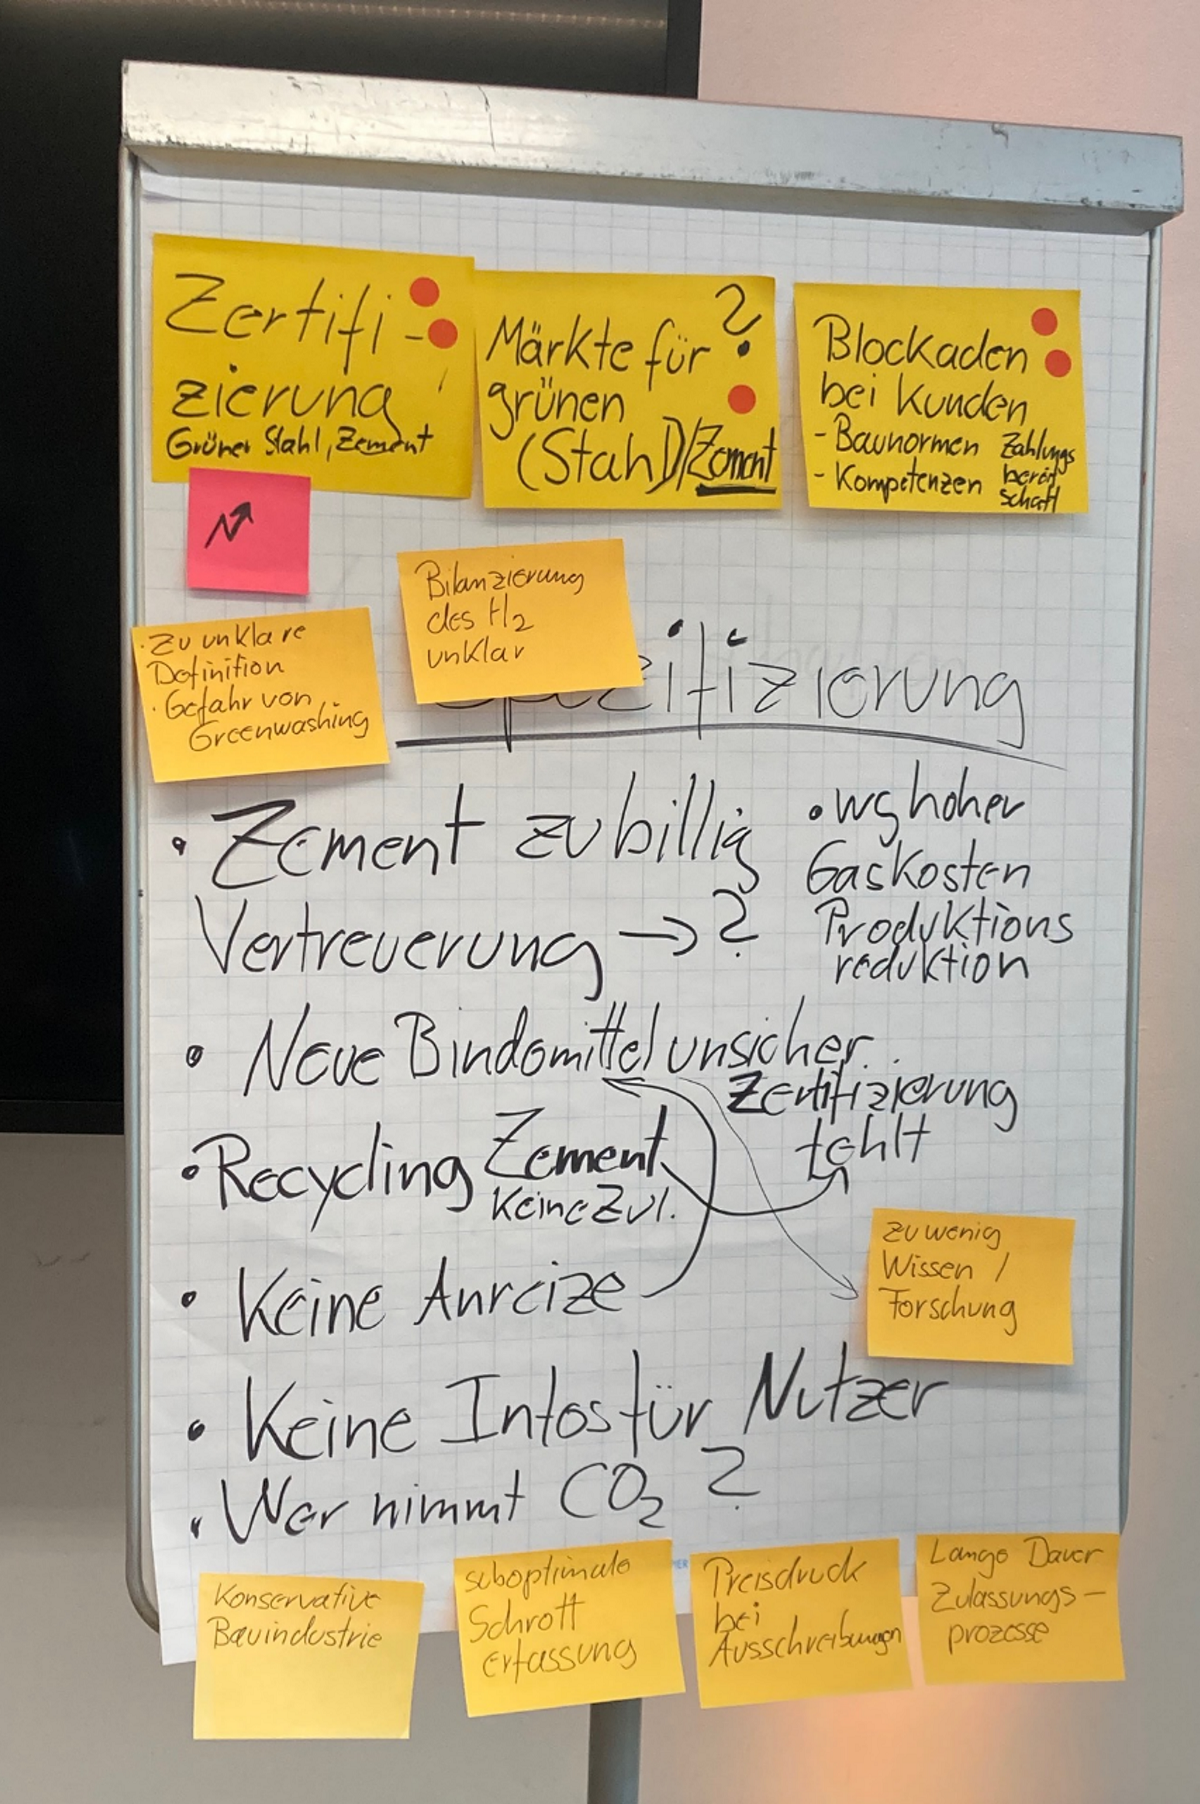 Zertifi-
zierung
Grüner Stahl, Zement
Märkte für ?
grünen
(Stahl)/Zement
Blockaden
bei Kunden
- Baunormen
- Kompetenzen
Zahlungs
bereit
schaft
Bilanzierung
des H₂
unklar
· Zu unklare
Definition
· Gefahr von
Greenwashing
Spezifizierung
• Zement zu billig
Vertreuerung → ?
• wg hoher
Gaskosten
Produktions
reduktion
• Neue Bindemittel unsicher.
Zertifizierung
fehlt
• Recycling Zement
Keine Zul.
zu wenig
Wissen /
Forschung
• Keine Anreize
• Keine Infos für Nutzer
• Wer nimmt CO₂ ?
Konservative
Bauindustrie
suboptimale
Schrott
erfassung
Preisdruck
bei
Ausschreibungen
Lange Dauer
Zulassungs-
prozesse